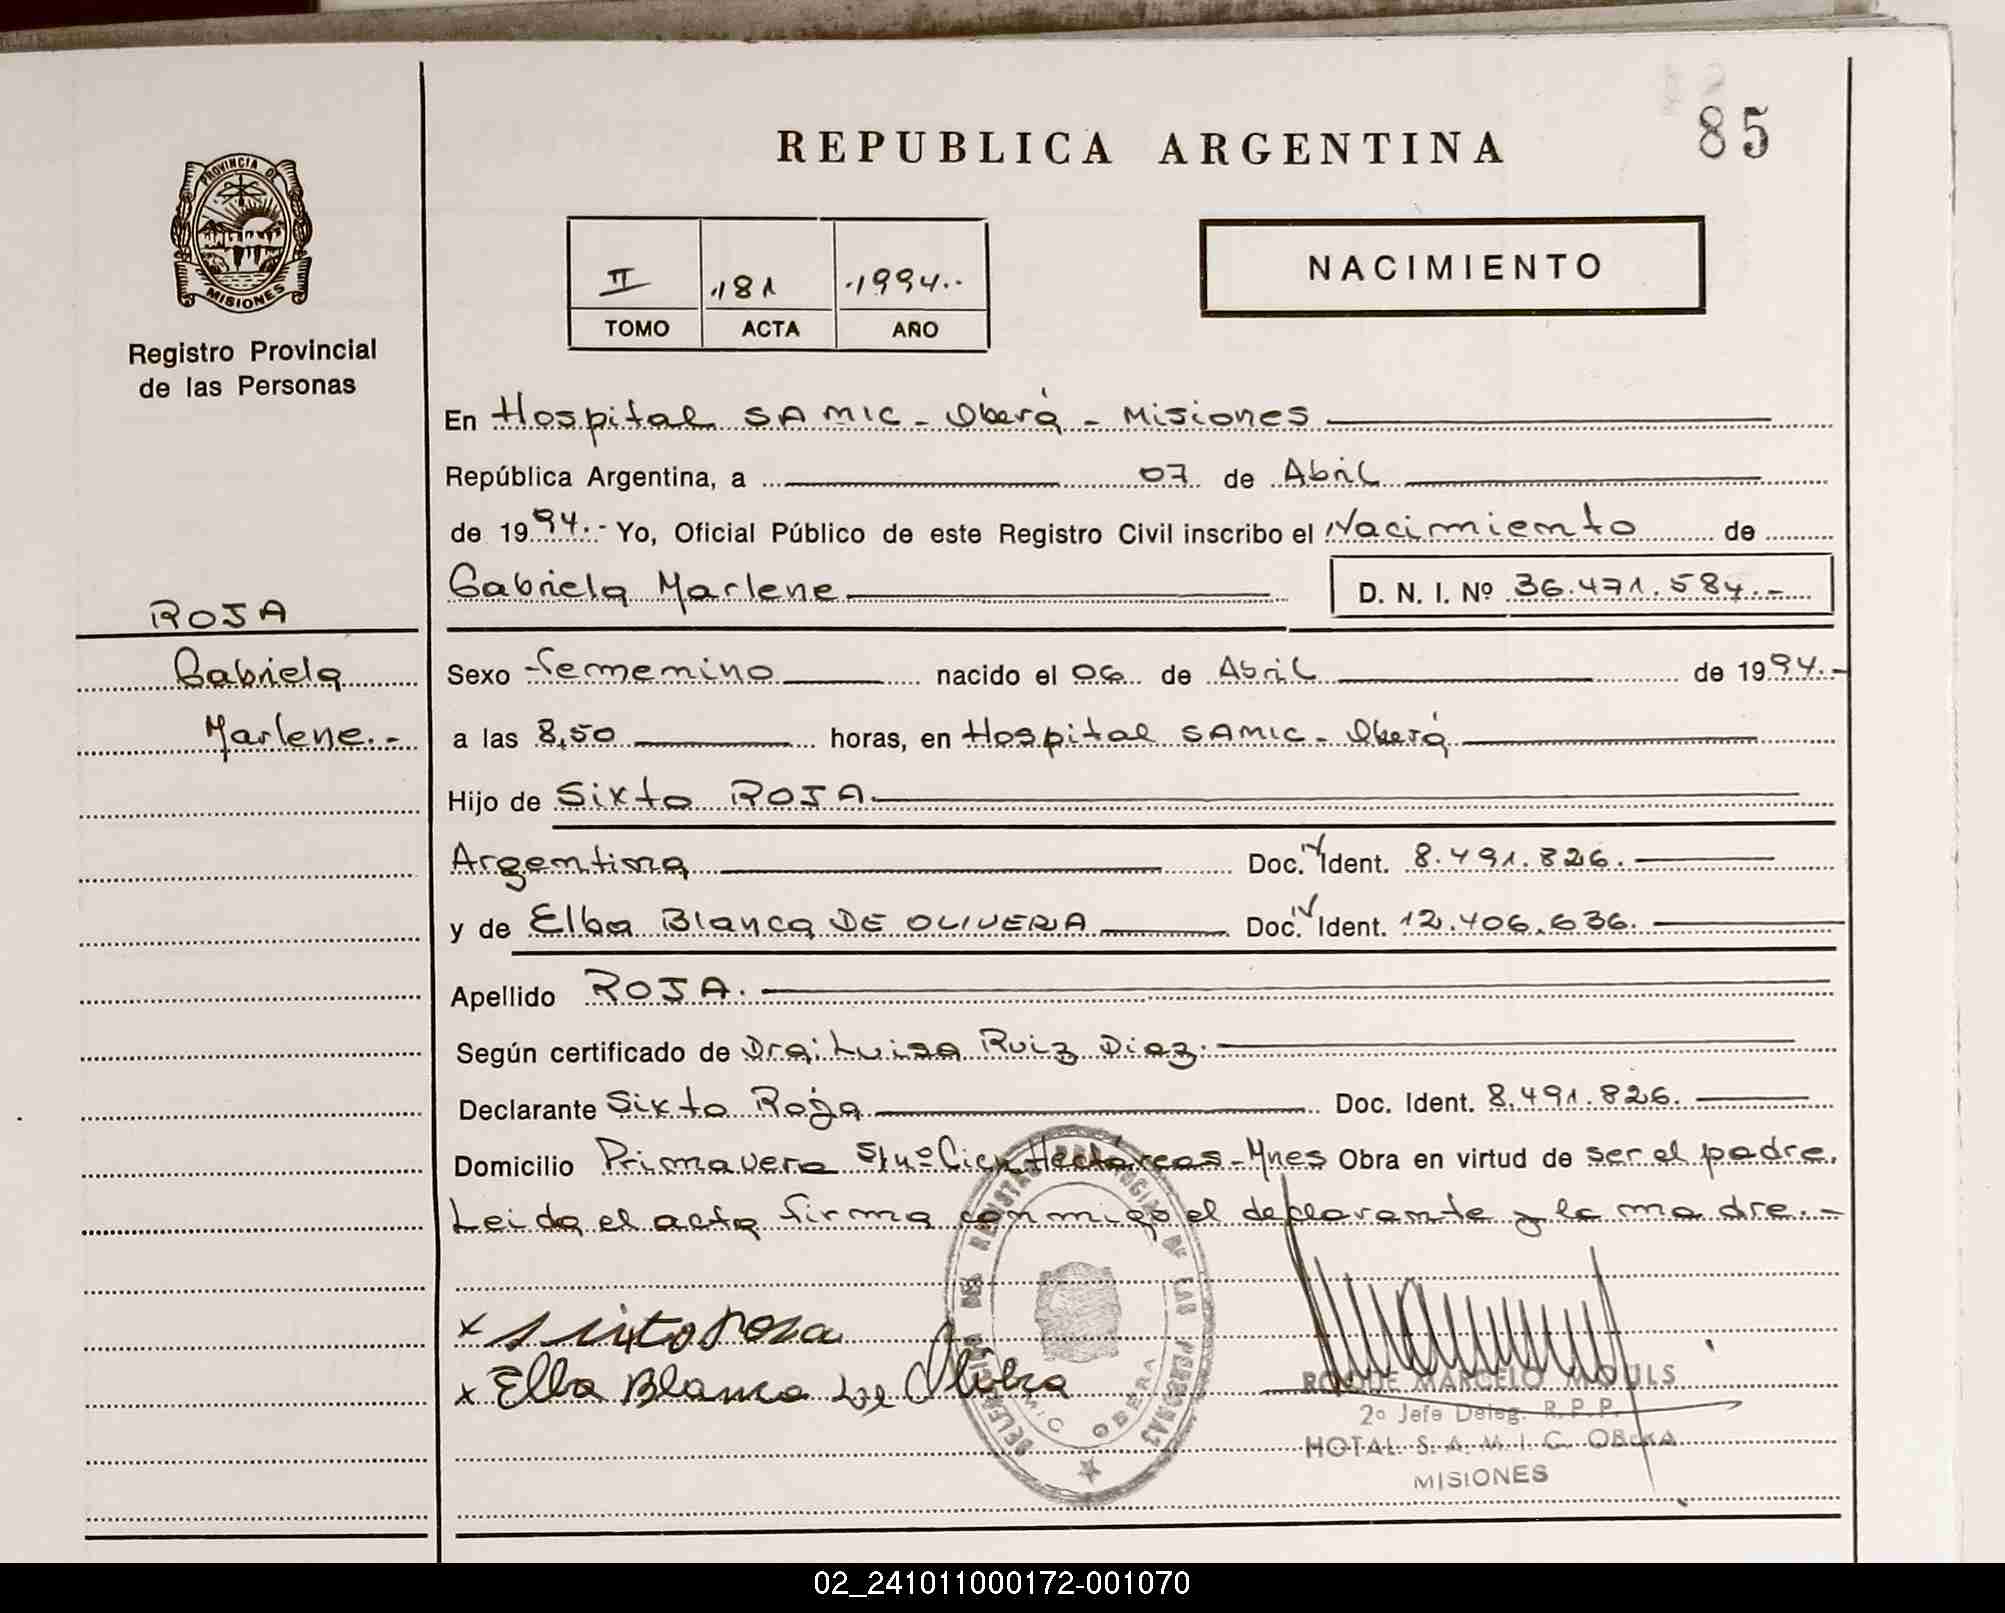 85
REPUBLICA ARGENTINA
PROVINCIA DE
MISIONES
Registro Provincial
de las Personas
II 181 1994
TOMO ACTA AÑO
NACIMIENTO
En Hospital SAMIC - Oberá - Misiones
República Argentina, a 07 de Abril
de 1994.- Yo, Oficial Público de este Registro Civil inscribo el Nacimiento de
Gabriela Marlene D. N. I. Nº 36.471.584.-
ROJA
Gabriela
Marlene.-
Sexo femenino nacido el 06 de Abril de 1994.-
a las 8,50 horas, en Hospital SAMIC - Oberá
Hijo de Sixto ROJA
Argentina Doc. N Ident. 8.491.826.
y de Elba Blanca DE OLIVERIA Doc. N Ident. 12.406.636.
Apellido ROJA.
Según certificado de Dra: Luisa Ruiz Diaz.
Declarante Sixto Roja Doc. Ident. 8.491.826.
Domicilio Primavera S/nº Cien Hectáreas - Mnes Obra en virtud de ser el padre.
Leida el acta firma conmigo el declarante y la madre.-
x Sixto Rosa
x Elba Blanca de
DEL REGISTRO PROVINCIAL DE LAS PERSONAS
OBERA
ROQUE MARCELO MOULS
2º Jefe Deleg. R.P.P.
HOTAL S.A.M.I.C. OBERA
MISIONES
02_241011000172-001070